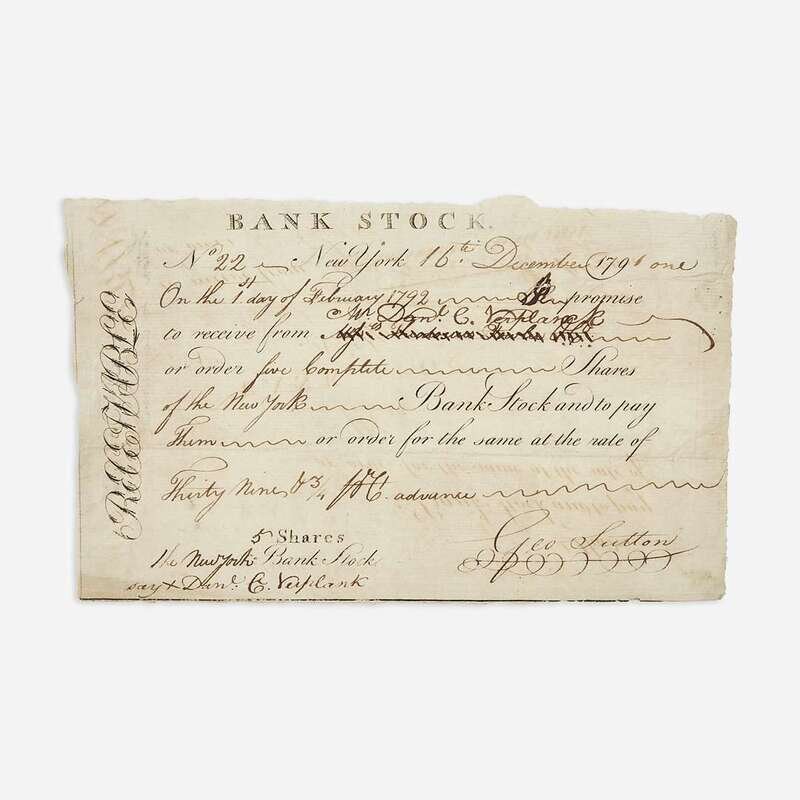 BANK STOCK.
No 22 New York 16th December 1791 one
On the 1st day of February 1792 I promise
Mr. Danl. C. Verplanck
to receive from
or order five Complete Shares
of the New York Bank Stock and to pay
Them or order for the same at the rate of
Thirty Nine & 3/4 P Ct. advance
5 Shares
the New York Bank Stock
Danl. C. Verplank
Geo Sutton
RECEIVABLE